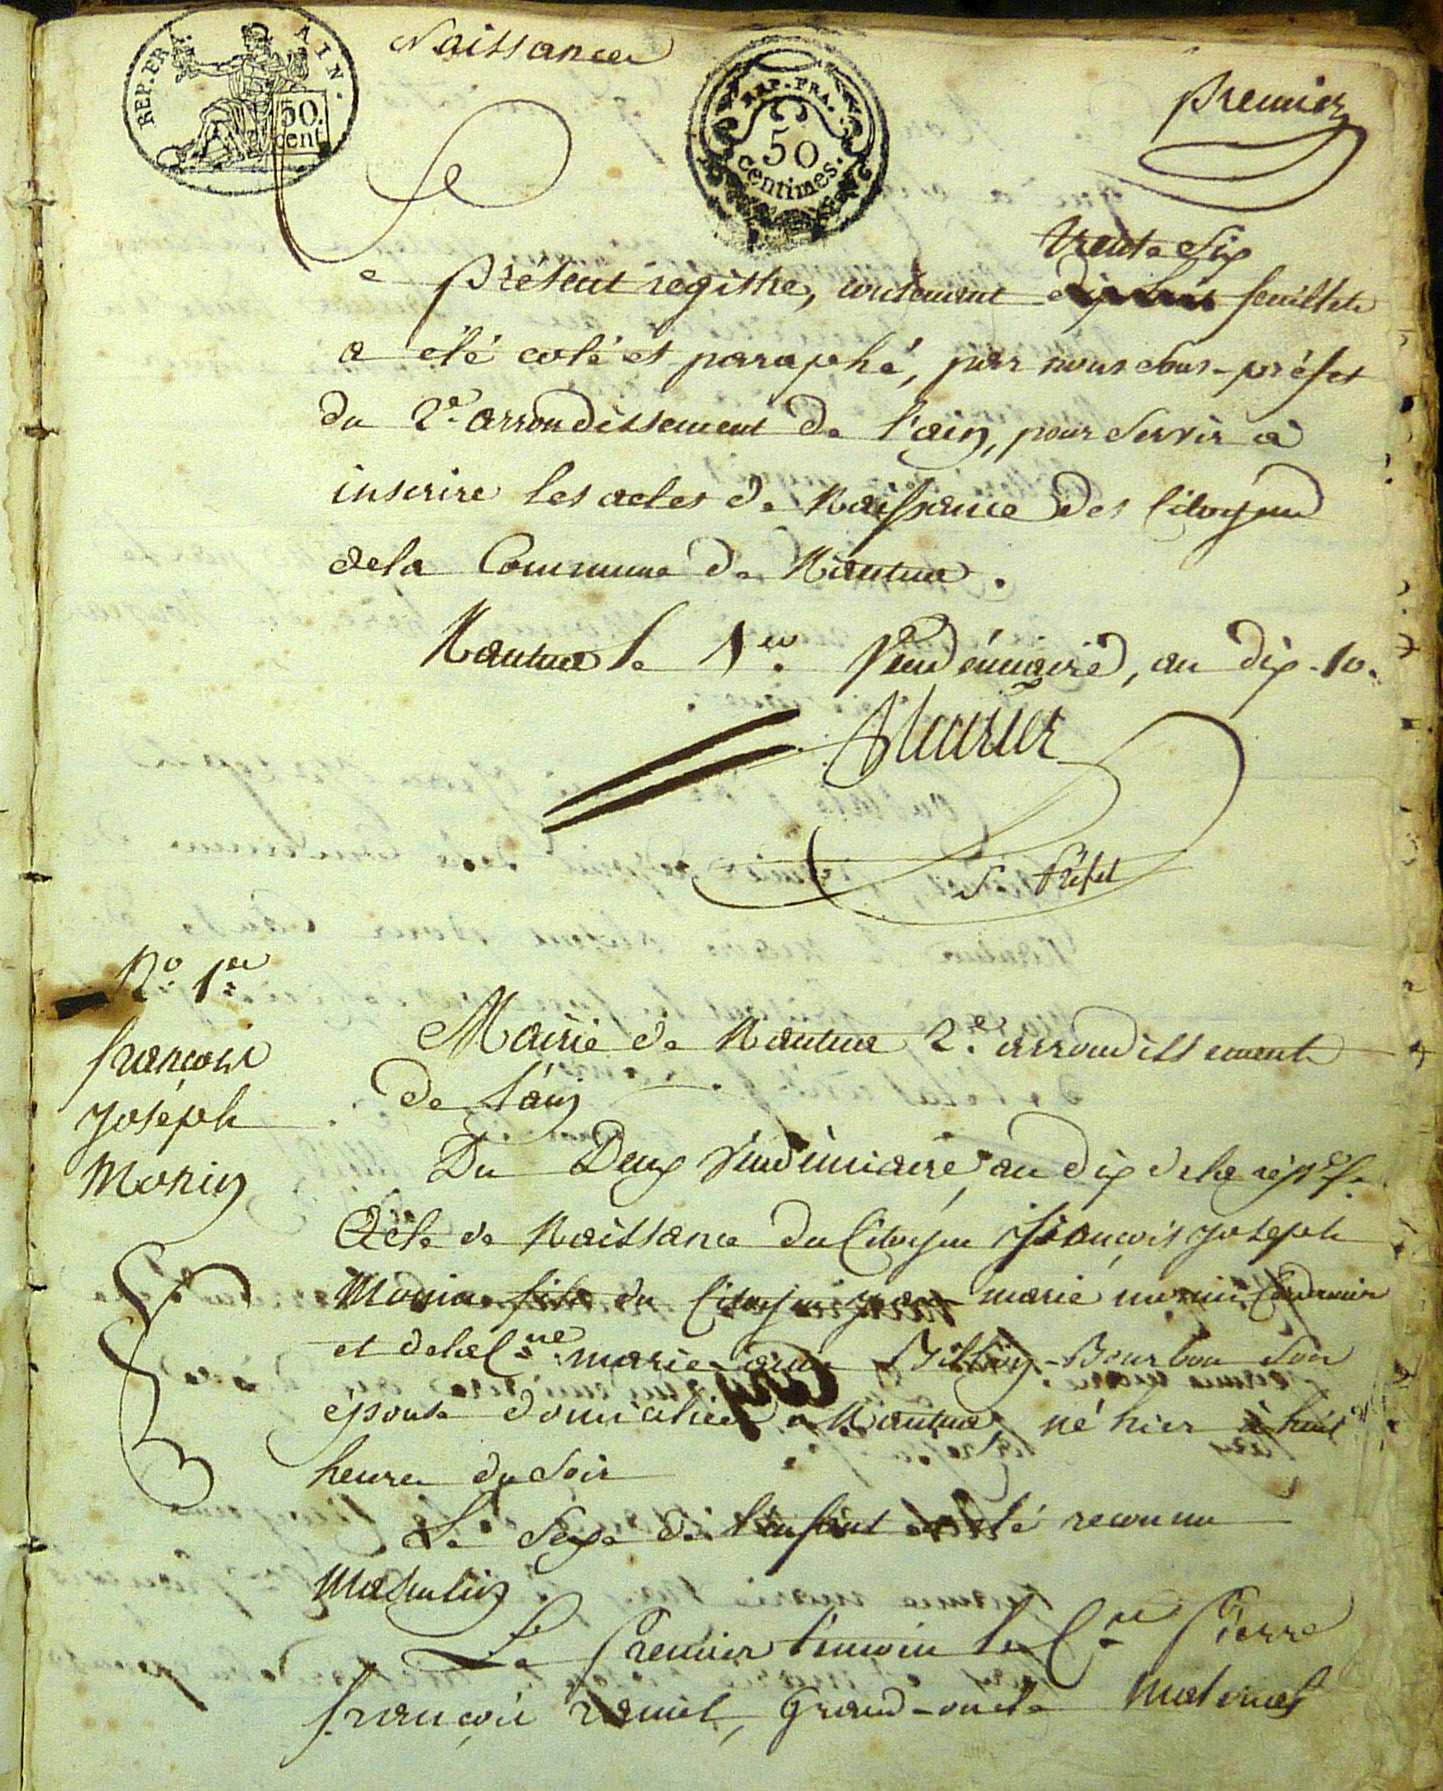 REP. FRA. AIN.
50. cent.
Naissances
REP. FRA.
50
centimes.
Premier
trente Six
Le présent registre, contenant feuillets
a été coté et paraphé, par nous sous-préfet
du 2e. arrondissement de l'ain, pour servir à
inscrire les actes de Naissance des Citoyens
dela Commune de Nantua.
Nantua le 1er. Vendémiaire, an dix - 10.
S. Préfet
No. 1er
françois
Joséph
Morin
Mairie de Nantua 2e. arrondissement
de L'ain
Du Deux Vendémiaire, an dix dela
Acte de Naissance du Citoyen françois joseph
Morin fils du Citoyen jean marie morin
et dela Cne. marie Billion-Bourbon Son
épouse domiciliés a Nantua, né hier à huit
heures du Soir
Le Sexe de l'enfant a été reconnu
Masculin
Le Premier témoin le Cen Pierre
françois ramel, Grand-oncle Maternel